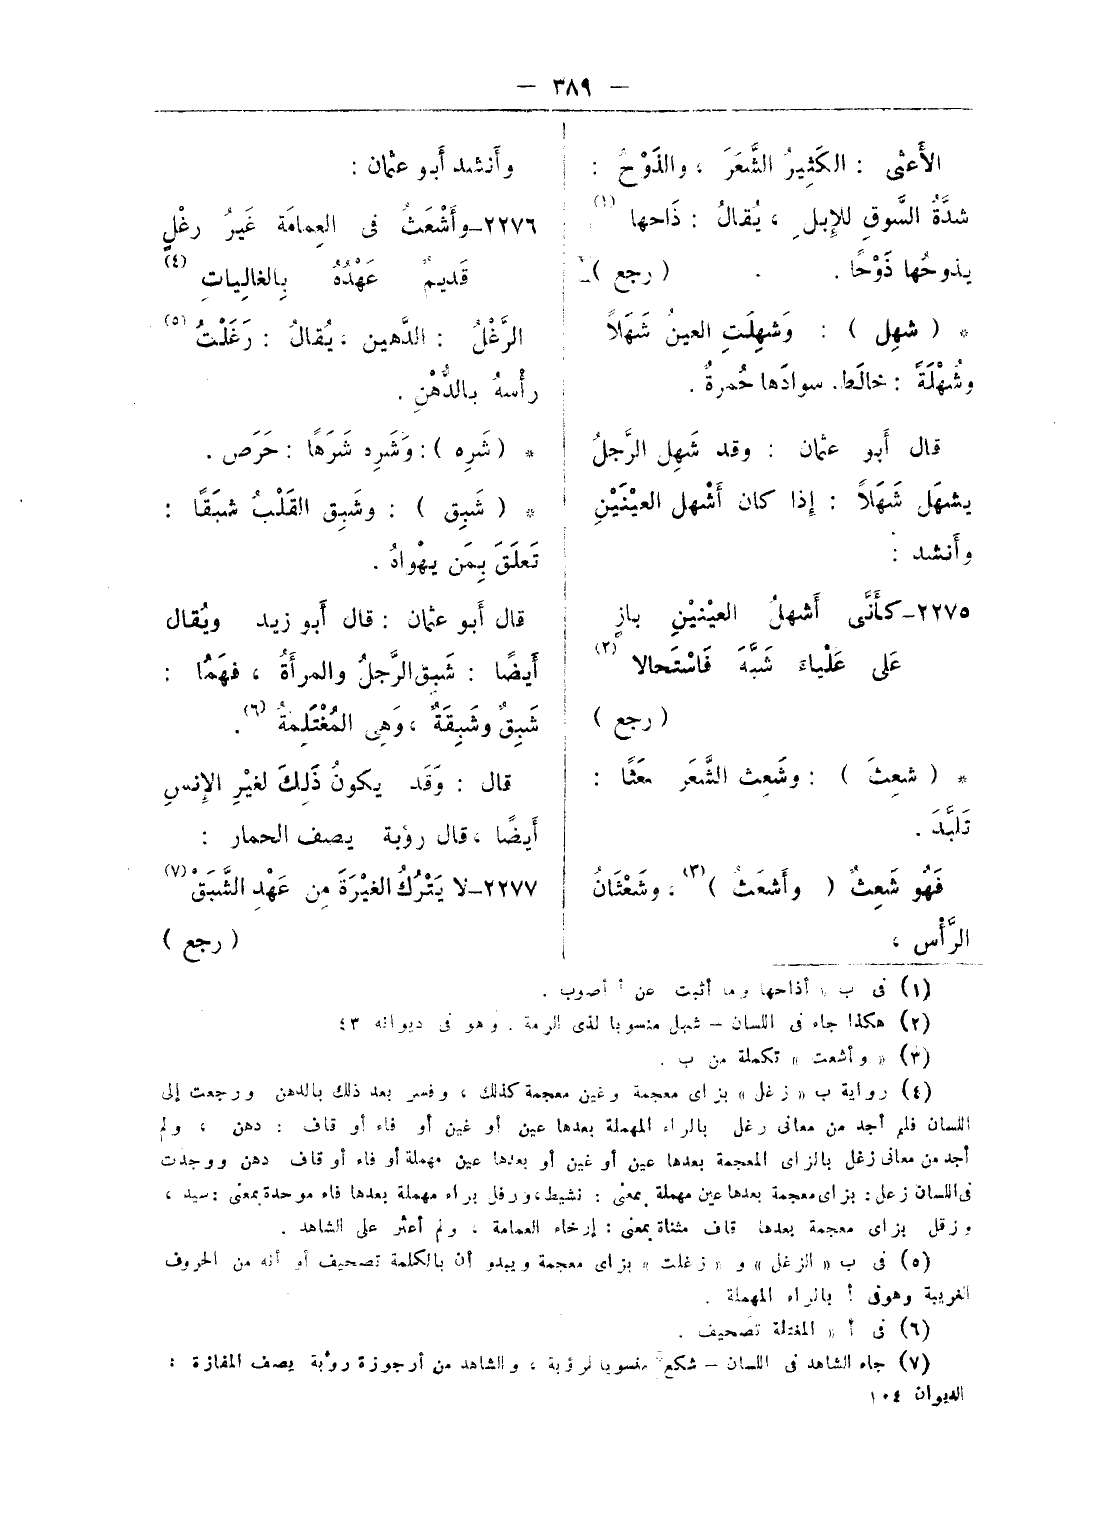 — ٣٨٩ —
الأَعثى : الكَثِيرُ الشَّعَرَ ، والذَوْحُ :
شدَّةُ السَّوقِ للإِبلِ ، يُقالُ : ذَاحها (١)
يذوحُها ذَوْحًا . ( رجع )
* ( شهِل ) : وَشهِلَتِ العينُ شَهَلاً
وشُهْلَةً : خالَط سوادَها حُمرةٌ .
قال أَبو عثمان : وقد شَهِل الرَّجلُ
يشهَل شَهَلاً : إذا كان أَشْهل العيْنَيْنِ
وأَنشد :
٢٢٧٥–كأَنَّى أَشهلُ العيْنيْنِ بازٍ
عَلى عَلْياءَ شَبَّهَ فَاسْتَحالا (٢)
( رجع )
* ( شعِثَ ) : وشَعِث الشَّعَر شَعَثًا :
تَلَبَّدَ .
فَهُو شَعِثٌ ( وأَشعَثُ )(٣) ، وشَعْثَانُ
الرَّأْس ،
وأَنشد أَبو عثمان :
٢٢٧٦–وأَشْعَثُ فى العِمامَة غَيرُ رغْلٍ
قَديمٌ عَهْدُهُ بِالغالِياتِ (٤)
الرَّغْلُ : الدَّهين ، يُقالُ : رَغَلْتُ (٥)
رأْسهُ بالدُّهْنِ .
* ( شَرِه ) : وَشَرِه شَرَهًا : حَرَص .
* ( شَبِق ) : وشَبِق القَلْبُ شبَقًا :
تَعلَقَ بِمَن يهْواهُ .
قال أَبو عثمان : قال أَبو زيد ويُقال
أَيضًا : شَبِق الرَّجلُ والمرأَةُ ، فهمَا :
شَبِقٌ وشَبِقَةٌ ، وَهِى المُغْتَلِمةُ (٦) .
قال : وَقَد يكونُ ذَلِكَ لغيْرِ الإِنسِ
أَيضًا ، قال رؤبة يصف الحمار :
٢٢٧٧–لا يَتْرُكُ الغيْرَةَ مِن عَهْدِ الشَّبَقْ (٧)
( رجع )
(١) فى ب « أذاحها وما أثبت عن أ أصوب .
(٢) هكذا جاء فى اللسان – شهل منسوبا لذى الرمة . وهو فى ديوانه ٤٣
(٣) « وأشعت » تكملة من ب .
(٤) رواية ب « زغل » بزاى معجمة وغين معجمة كذلك ، وفسر بعد ذلك بالدهن ورجعت إلى
اللسان فلم أجد من معانى رغل بالراء المهملة بعدها عين أو غين أو فاء أو قاف : دهن ، ولم
أجد من معانى زغل بالزاى المعجمة بعدها عين أو غين أو بعدها عين مهملة أو فاء أو قاف دهن ووجدت
فى اللسان زعل : بزاى معجمة بعدها عين مهملة بمعنى : نشيط ، ورفل براء مهملة بعدها فاء موحدة بمعنى : سيد ،
وزقل بزاى معجمة بعدها قاف مثناة بمعنى : إرخاء العمامة ، ولم أعثر على الشاهد .
(٥) فى ب « الزغل » و « زغلت » بزاى معجمة ويبدو أن بالكلمة تصحيف أو أنه من الحروف
الغريبة وهوفى أ بالراء المهملة .
(٦) فى أ « المغتلة تصحيف .
(٧) جاء الشاهد فى اللسان – شكع منسوبا لرؤبة ، والشاهد من أرجوزة رؤبة يصف المفازة :
الديوان ١٠٤